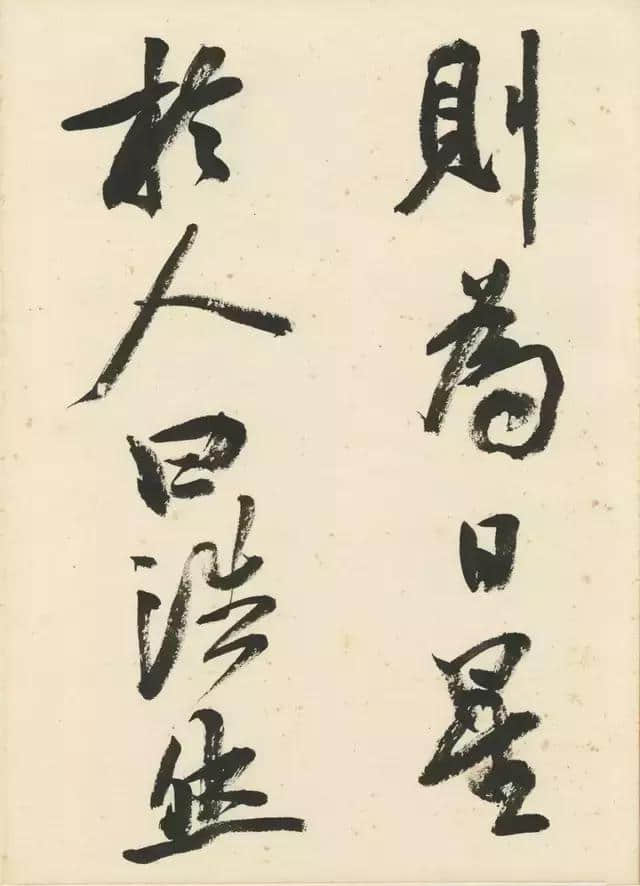 則為日星
於人曰浩然